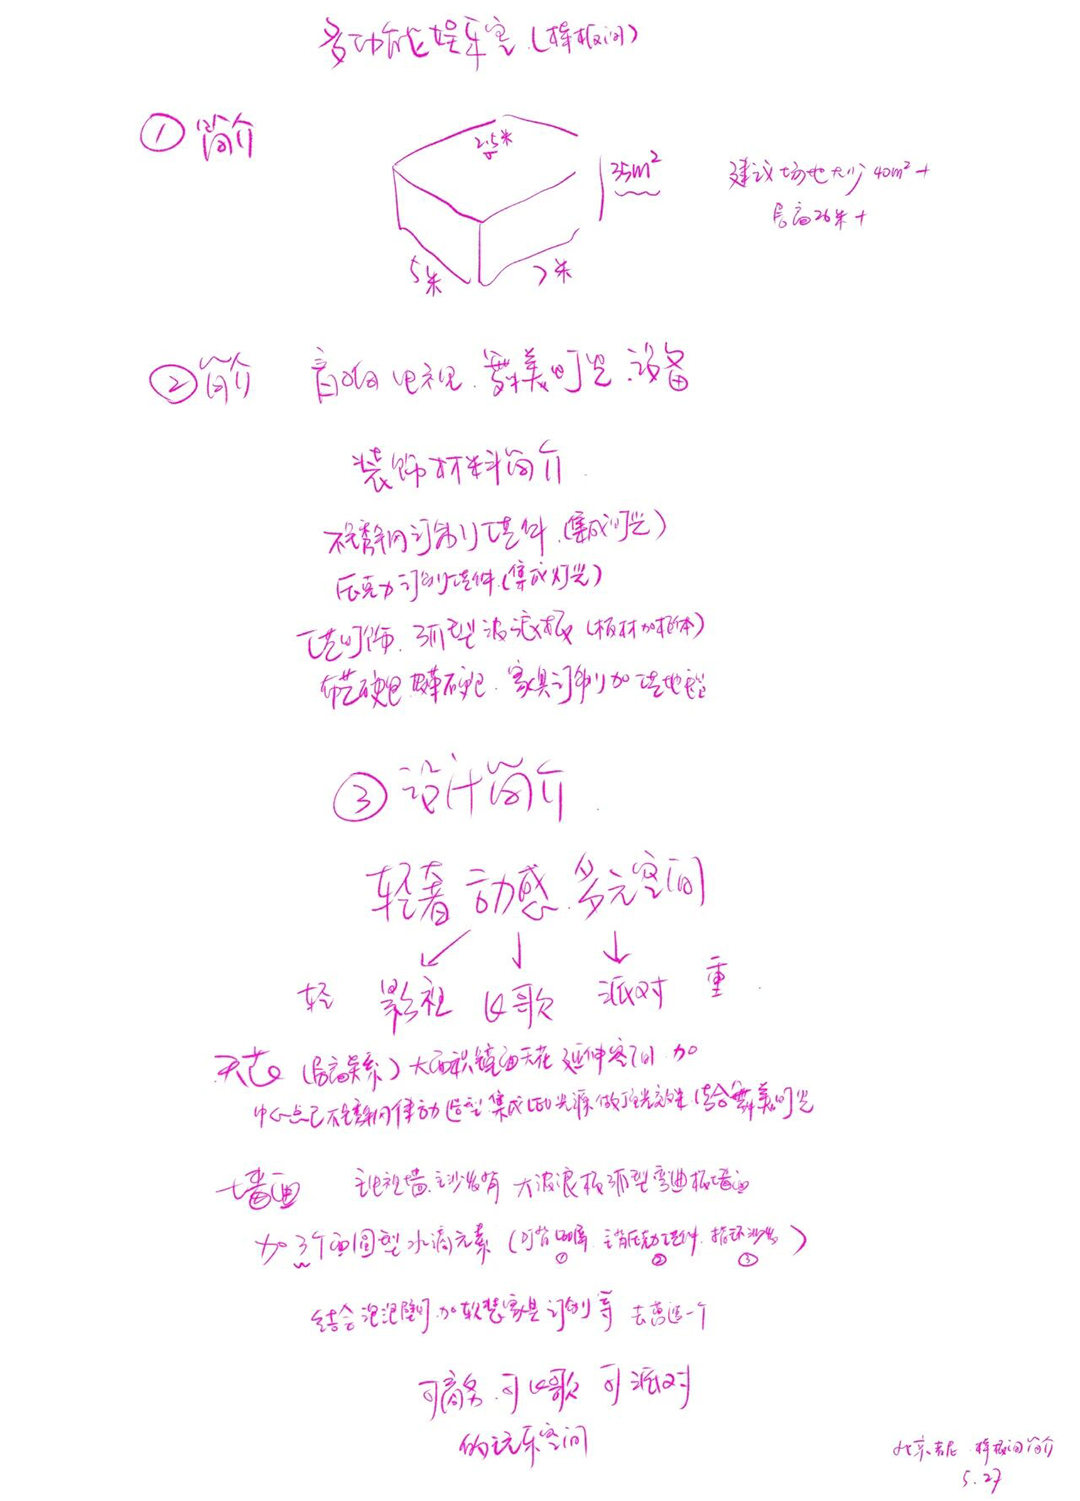 多功能娱乐室 (样板间)
① 简介
2.5米
35m²
5米
7米
建议场地大小 40m²+
层高2.6米+
② 简介 音响 电视. 舞美灯光 设备
装饰材料简介
不锈钢订制造件 (集成灯光)
压克力订制造件 (集成灯光)
弧型波浪板 (板材加框体)
布艺硬包 皮革硬包. 家具订制加
③ 设计简介
轻奢 动感 多元空间
轻 影视 K歌 派对 重
天花 (层高关系) 大面积镜面天花 延伸空间 加
中心点 不锈钢律动造型 集成 光源 做 结合舞美灯光
墙面 电视墙. 沙发背 大波浪板弧型弯曲板墙面
加 3个 圆型 水滴元素 (
① ② ③
结合 加软装家具订制等 去营造一个
可商务. 可K歌 可派对
的玩乐空间
北京 样板间简介
5.27